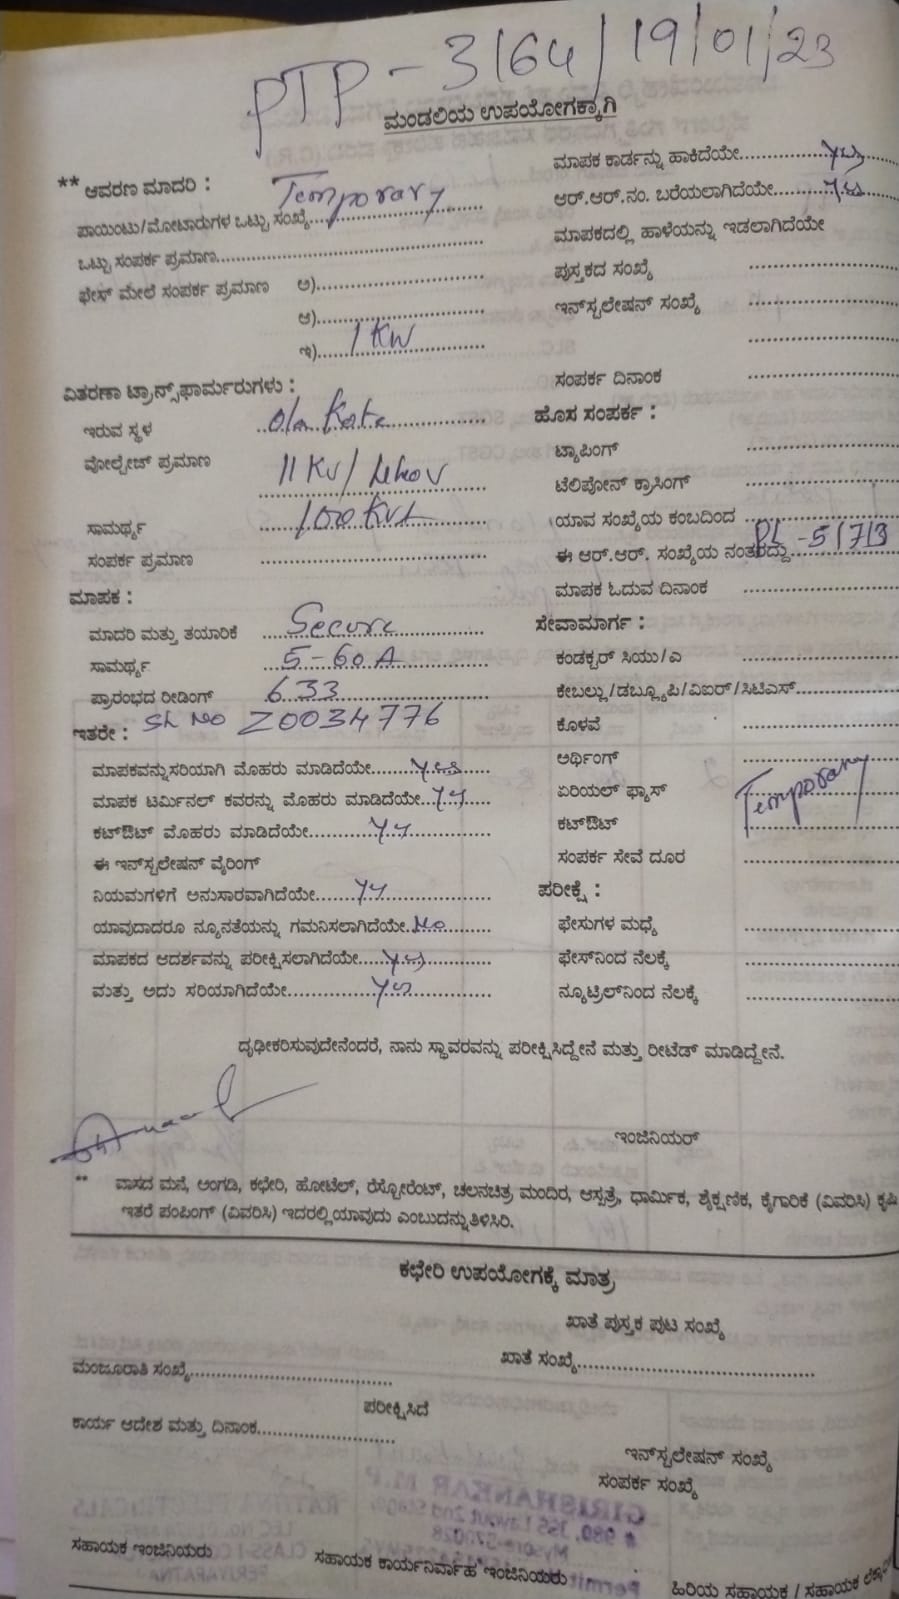 PTP - 3164/19/01/23
ಮಂಡಲಿಯ ಉಪಯೋಗಕ್ಕಾಗಿ
** ಆವರಣ ಮಾದರಿ : Temporary
ಪಾಯಿಂಟು/ಮೋಟಾರುಗಳ ಒಟ್ಟು ಸಂಖ್ಯೆ
ಒಟ್ಟು ಸಂಪರ್ಕ ಪ್ರಮಾಣ
ಫೇಸ್ ಮೇಲೆ ಸಂಪರ್ಕ ಪ್ರಮಾಣ ಅ)
ಆ)
ಇ) 1 KW
ವಿತರಣಾ ಟ್ರಾನ್ಸ್‌ಫಾರ್ಮರುಗಳು :
ಇರುವ ಸ್ಥಳ
ವೋಲ್ಟೇಜ್ ಪ್ರಮಾಣ 11 KV/
ಸಾಮರ್ಥ್ಯ 100 KVA
ಸಂಪರ್ಕ ಪ್ರಮಾಣ
ಮಾಪಕ :
ಮಾದರಿ ಮತ್ತು ತಯಾರಿಕೆ Secure
ಸಾಮರ್ಥ್ಯ 5-60 A
ಪ್ರಾರಂಭದ ರೀಡಿಂಗ್ 633
ಇತರೇ : SL NO Z0034776
ಮಾಪಕವನ್ನು ಸರಿಯಾಗಿ ಮೊಹರು ಮಾಡಿದೆಯೇ yes
ಮಾಪಕ ಟರ್ಮಿನಲ್ ಕವರನ್ನು ಮೊಹರು ಮಾಡಿದೆಯೇ yes
ಕಟ್‌ಔಟ್ ಮೊಹರು ಮಾಡಿದೆಯೇ yes
ಈ ಇನ್‌ಸ್ಟಲೇಷನ್ ವೈರಿಂಗ್
ನಿಯಮಗಳಿಗೆ ಅನುಸಾರವಾಗಿದೆಯೇ yes
ಯಾವುದಾದರೂ ನ್ಯೂನತೆಯನ್ನು ಗಮನಿಸಲಾಗಿದೆಯೇ No
ಮಾಪಕದ ಆದರ್ಶವನ್ನು ಪರೀಕ್ಷಿಸಲಾಗಿದೆಯೇ yes
ಮತ್ತು ಅದು ಸರಿಯಾಗಿದೆಯೇ yes
ಮಾಪಕ ಕಾರ್ಡನ್ನು ಹಾಕಿದೆಯೇ yes
ಆರ್.ಆರ್.ನಂ. ಬರೆಯಲಾಗಿದೆಯೇ yes
ಮಾಪಕದಲ್ಲಿ ಹಾಳೆಯನ್ನು ಇಡಲಾಗಿದೆಯೇ
ಪುಸ್ತಕದ ಸಂಖ್ಯೆ
ಇನ್‌ಸ್ಟಲೇಷನ್ ಸಂಖ್ಯೆ
ಸಂಪರ್ಕ ದಿನಾಂಕ
ಹೊಸ ಸಂಪರ್ಕ :
ಟ್ಯಾಪಿಂಗ್
ಟೆಲಿಫೋನ್ ಕ್ರಾಸಿಂಗ್
ಯಾವ ಸಂಖ್ಯೆಯ ಕಂಬದಿಂದ
ಈ ಆರ್.ಆರ್. ಸಂಖ್ಯೆಯ ನಂತರದ್ದು
ಮಾಪಕ ಓದುವ ದಿನಾಂಕ
ಸೇವಾಮಾರ್ಗ :
ಕಂಡಕ್ಟರ್ ಸಿಯು/ಎ
ಕೇಬಲ್ಲು/ಡಬ್ಲ್ಯೂಪಿ/ವಿಐಆರ್/ಸಿಟಿಎಸ್
ಕೊಳವೆ
ಅರ್ಥಿಂಗ್
ಏರಿಯಲ್ ಫ್ಯೂಸ್ Temporary
ಕಟ್‌ಔಟ್
ಸಂಪರ್ಕ ಸೇವೆ ದೂರ
ಪರೀಕ್ಷೆ :
ಫೇಸುಗಳ ಮಧ್ಯೆ
ಫೇಸ್‌ನಿಂದ ನೆಲಕ್ಕೆ
ನ್ಯೂಟ್ರಿಲ್‌ನಿಂದ ನೆಲಕ್ಕೆ
ದೃಢೀಕರಿಸುವುದೇನೆಂದರೆ, ನಾನು ಸ್ಥಾವರವನ್ನು ಪರೀಕ್ಷಿಸಿದ್ದೇನೆ ಮತ್ತು ರೀಟೆಡ್ ಮಾಡಿದ್ದೇನೆ.
ಇಂಜಿನಿಯರ್
** ವಾಸದ ಮನೆ, ಅಂಗಡಿ, ಕಛೇರಿ, ಹೋಟೆಲ್, ರೆಸ್ಟೋರೆಂಟ್, ಚಲನಚಿತ್ರ ಮಂದಿರ, ಆಸ್ಪತ್ರೆ, ಧಾರ್ಮಿಕ, ಶೈಕ್ಷಣಿಕ, ಕೈಗಾರಿಕೆ (ವಿವರಿಸಿ) ಕೃಷಿ
ಇತರೆ ಪಂಪಿಂಗ್ (ವಿವರಿಸಿ) ಇದರಲ್ಲಿ ಯಾವುದು ಎಂಬುದನ್ನು ತಿಳಿಸಿರಿ.
ಕಛೇರಿ ಉಪಯೋಗಕ್ಕೆ ಮಾತ್ರ
ಖಾತೆ ಪುಸ್ತಕ ಪುಟ ಸಂಖ್ಯೆ
ಮಂಜೂರಾತಿ ಸಂಖ್ಯೆ ಖಾತೆ ಸಂಖ್ಯೆ
ಪರೀಕ್ಷಿಸಿದೆ
ಕಾರ್ಯ ಆದೇಶ ಮತ್ತು ದಿನಾಂಕ
ಇನ್‌ಸ್ಟಲೇಷನ್ ಸಂಖ್ಯೆ
ಸಂಪರ್ಕ ಸಂಖ್ಯೆ
ಸಹಾಯಕ ಇಂಜಿನಿಯರು ಸಹಾಯಕ ಕಾರ್ಯನಿರ್ವಾಹ ಇಂಜಿನಿಯರು ಹಿರಿಯ ಸಹಾಯಕ / ಸಹಾಯಕ